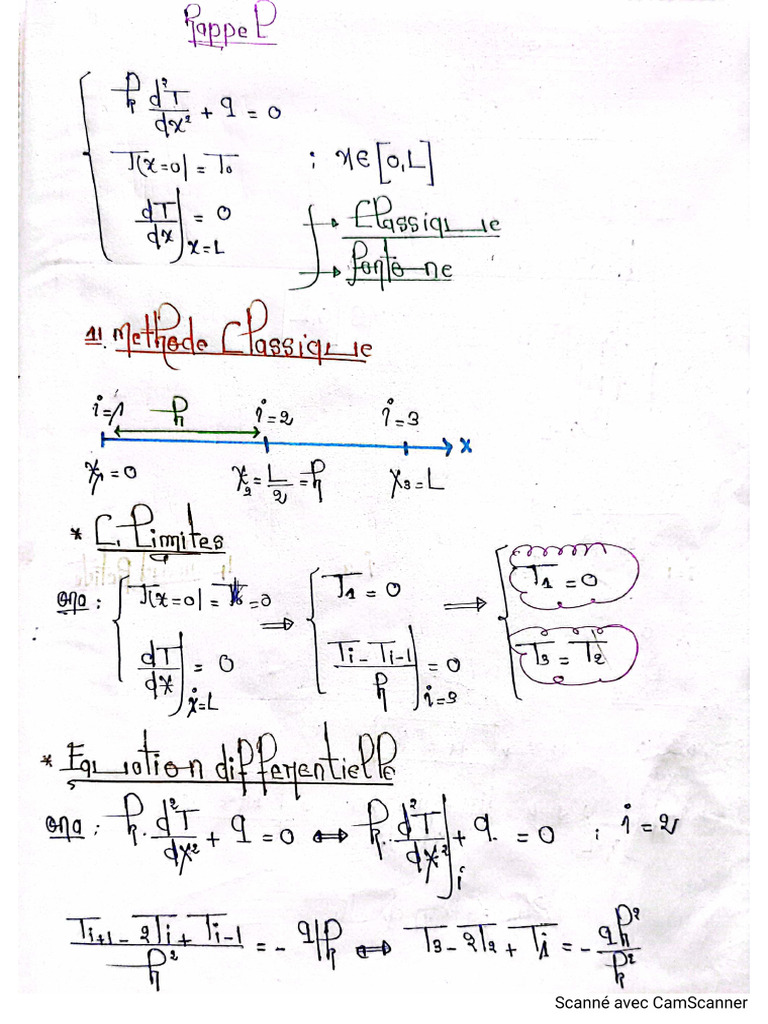 Rappel
k d²T/dx² + q = 0
T(x=0) = T₀ ; x∈[0,L]
dT/dx|x=L = 0
→ Classique
→ Fantome
1). Methode Classique
i=1 h i=2 i=3
x
x₁=0 x₂=L/2=h x₃=L
* C. Limites
ona : { T(x=0) = T₀ = 0 ⟹ { T₁ = 0 ⟹ { T₁ = 0
dT/dx|x=L = 0 (Ti - Ti-1)/h|i=3 = 0 T₃ = T₂
* Equation differentielle
ona : k. d²T/dx² + q = 0 ⟺ k. d²T/dx²|i + q = 0 ; i=2
(Ti+1 - 2Ti + Ti-1)/h² = - q/k ⟺ T₃ - 2T₂ + T₁ = - qh²/k²
Scanné avec CamScanner